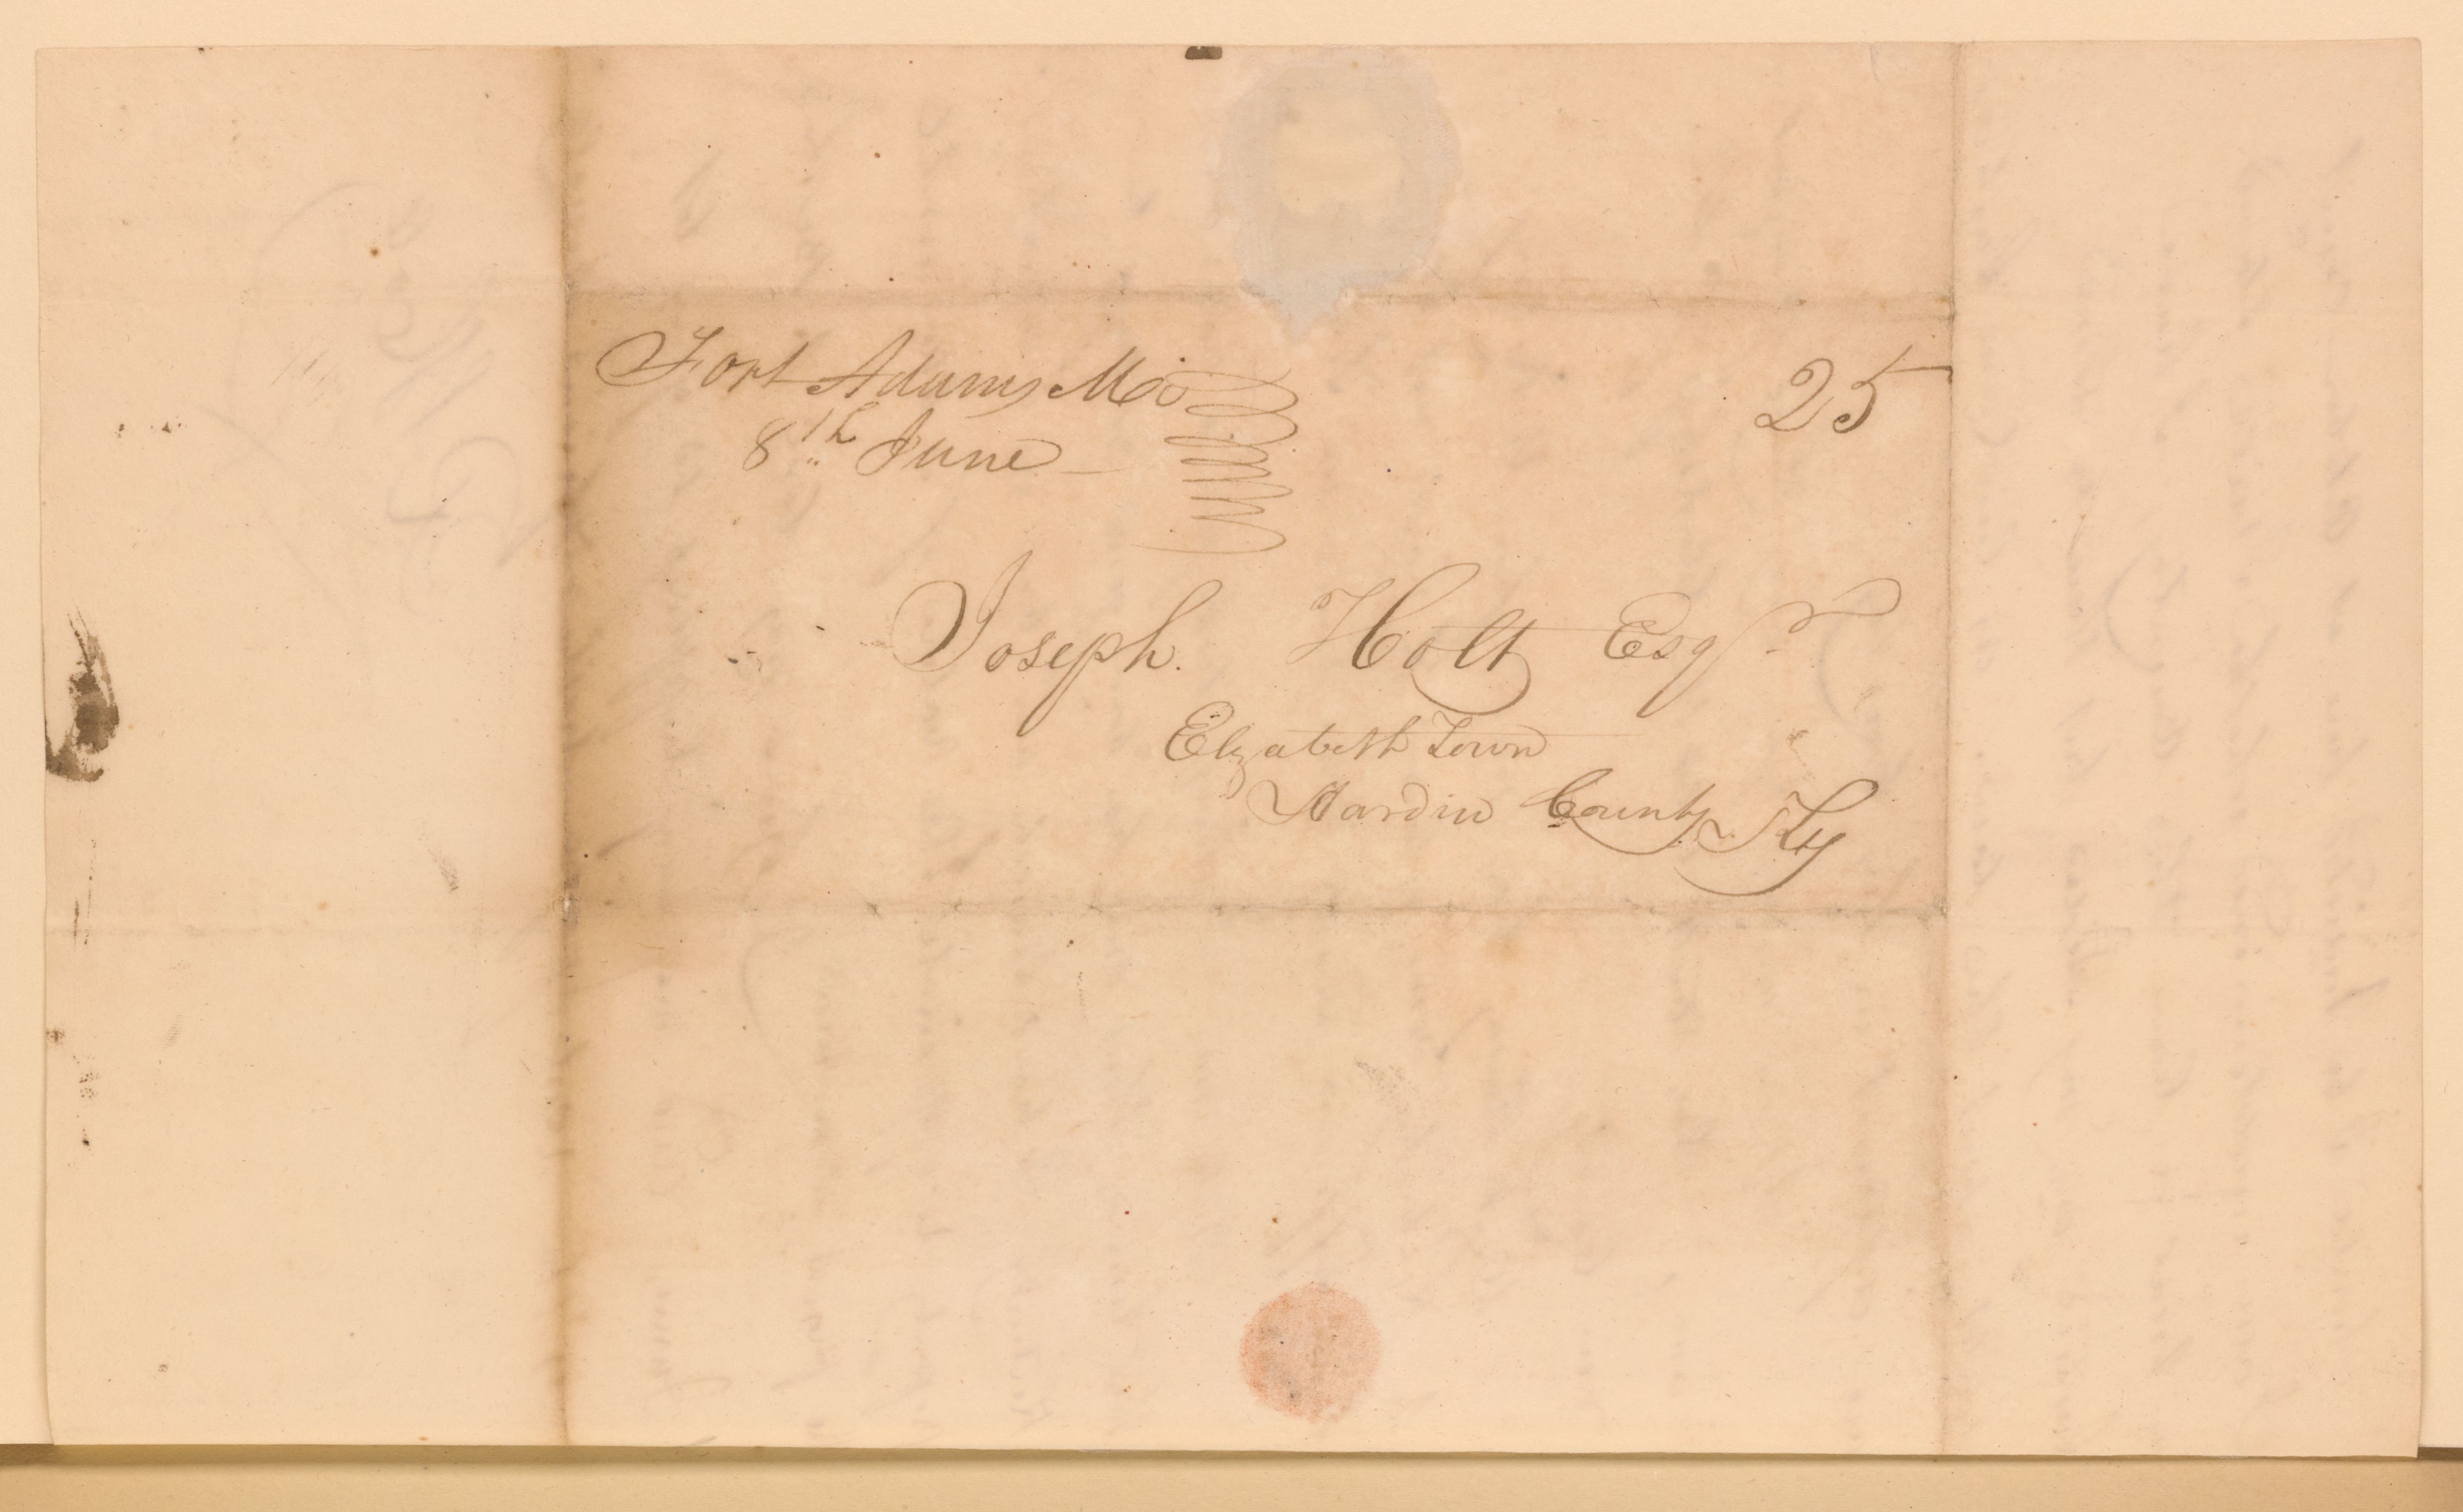 Fort Adams Mi
8th June
25
Joseph. Holt Esqr
Elzabeth Town
Hardin County Ky